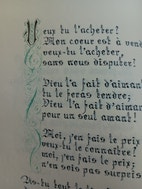 Veux-tu l'acheter?
Mon coeur est à vend
veux-tu l'acheter,
sans nous disputer?
Dieu l'a fait d'aiman
tu le feras tendre;
Dieu l'a fait d'aiman
pour un seul amant!
Moi, j'en fais le prix
veux-tu le connaître?
moi, j'en fais le prix;
n'en sois pas surpris
tout